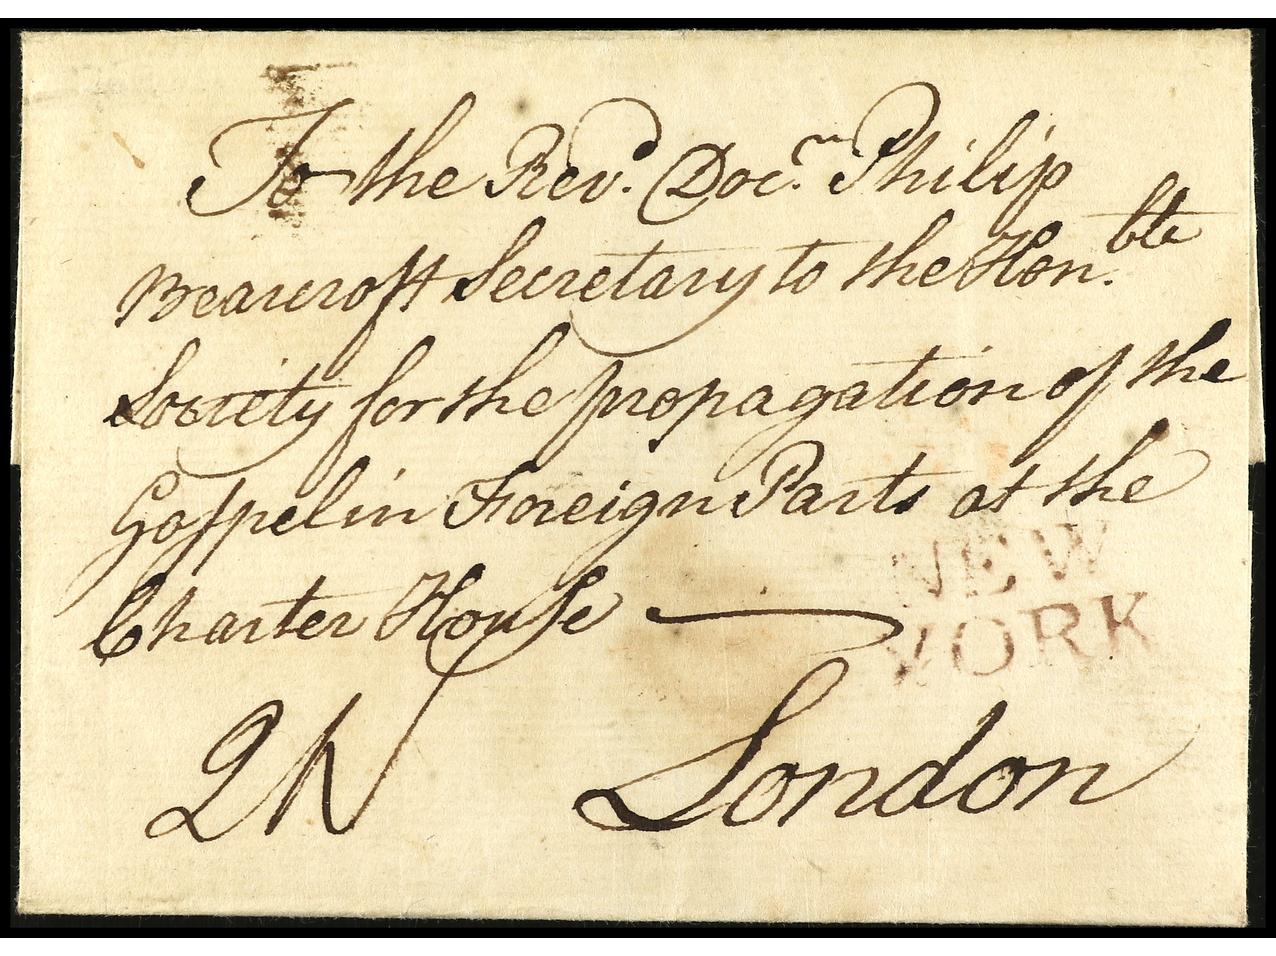 To the Revd. Docr. Philip
Bearcroft Secretary to the Honble.
Society for the propagation of the
Gosspel in Foreign Parts at the
Charter House
NEW
YORK
2N
London